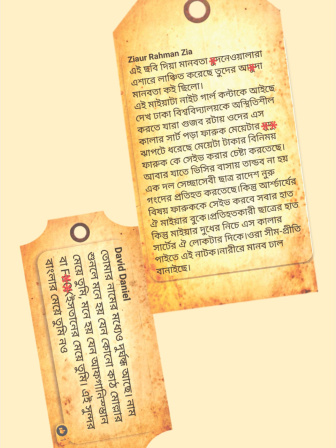 Ziaur Rahman Zia
এই ছবি দিয়া মানবতা দনেওয়ালারা
এশারে লাঞ্চিত করেছে তুদের আদা
মানবতা কই ছিলো।
এই মাইয়াটা নাইট গার্ল কন্টাকে আইছে
দেখ ঢাকা বিশ্ববিদ্যালয়কে অস্থিতিশীল
করতে যারা গুজব রটায় ওদের এস
কালার সার্ট পড়া ফারুক মেয়েটার
ঝাপটে ধরেছে মেয়েটা টাকার বিনিময়
ফারুক কে সেইভ করার চেষ্টা করতেছে।
আবার যাতে ভিসির বাসায় তান্ডব না হয়
এক দল সেচ্ছাসেবী ছাত্র রাদেশ নুরু
গংদের প্রতিহত করতেছে।কিন্তু আর্শ্চার্যের
বিষয় ফারুককে সেইভ করবে সবার হাত
ঐ মাইয়ার বুকে।প্রতিহতকারী ছাত্রের হাত
কিন্তু মাইয়ার দুধের নিচে এস কালার
সার্টের ঐ লোকটার দিকে।ওরা সীম-প্রীতি
পাইতে এই নাটক।নারীরে মানব ঢাল
বানাইছে।
David Daniel
তোমার নামের মধ্যেও দূর্গন্ধ আছে। নাম
শুনলে মনে হয় যেন কোনো কাঠ মোল্লার
মেয়ে তুমি, মনে হয় যেন আফগানিস্তান
বা পাকিস্তানের মেয়ে তুমি। এই সুন্দর
বাংলার মেয়ে তুমি নও